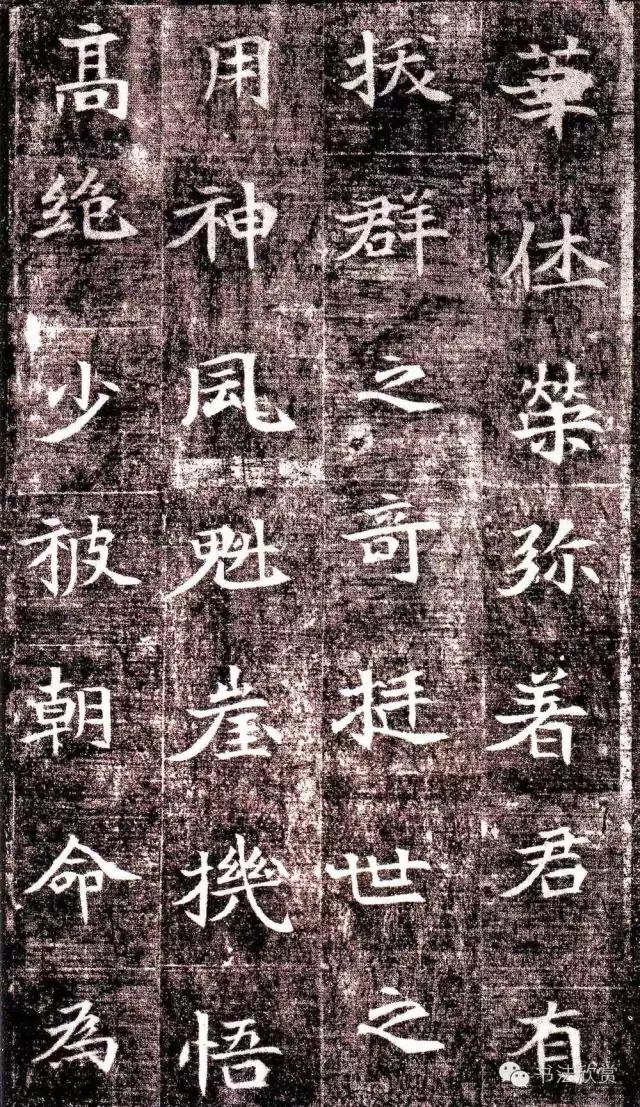 華榮弥著君有
拔群之奇挺世之
用神風魁崖機悟
髙絶少被朝命為
书法欣赏